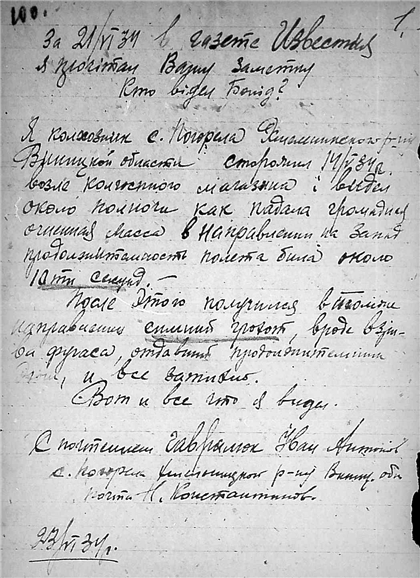 100.
1.
За 21/VI 34 в газете Известия
я прочітал Вашу заметку
Кто відел болід?
Я колхозник с. Погорела Хмельницкого р-ну
Виницкой области сторожил 14/VI 34 г.
возле колхозного магазина і видел
около полночи как падала громадная
огненная масса в направлении на Запад
продолжительность полета била около
10 ти секунд.
После этого получился в таком же
направлении сильний грохот, вроде взри-
ва фугаса, отдавший продолжительний
и все затихло.
Вот и все что я видел.
С почтением Гаврилюк Иван Антонов
с. Погорела Хмельницкого р-ну Виниц. обл
почта Н. Константинов
23/VI 34 г.